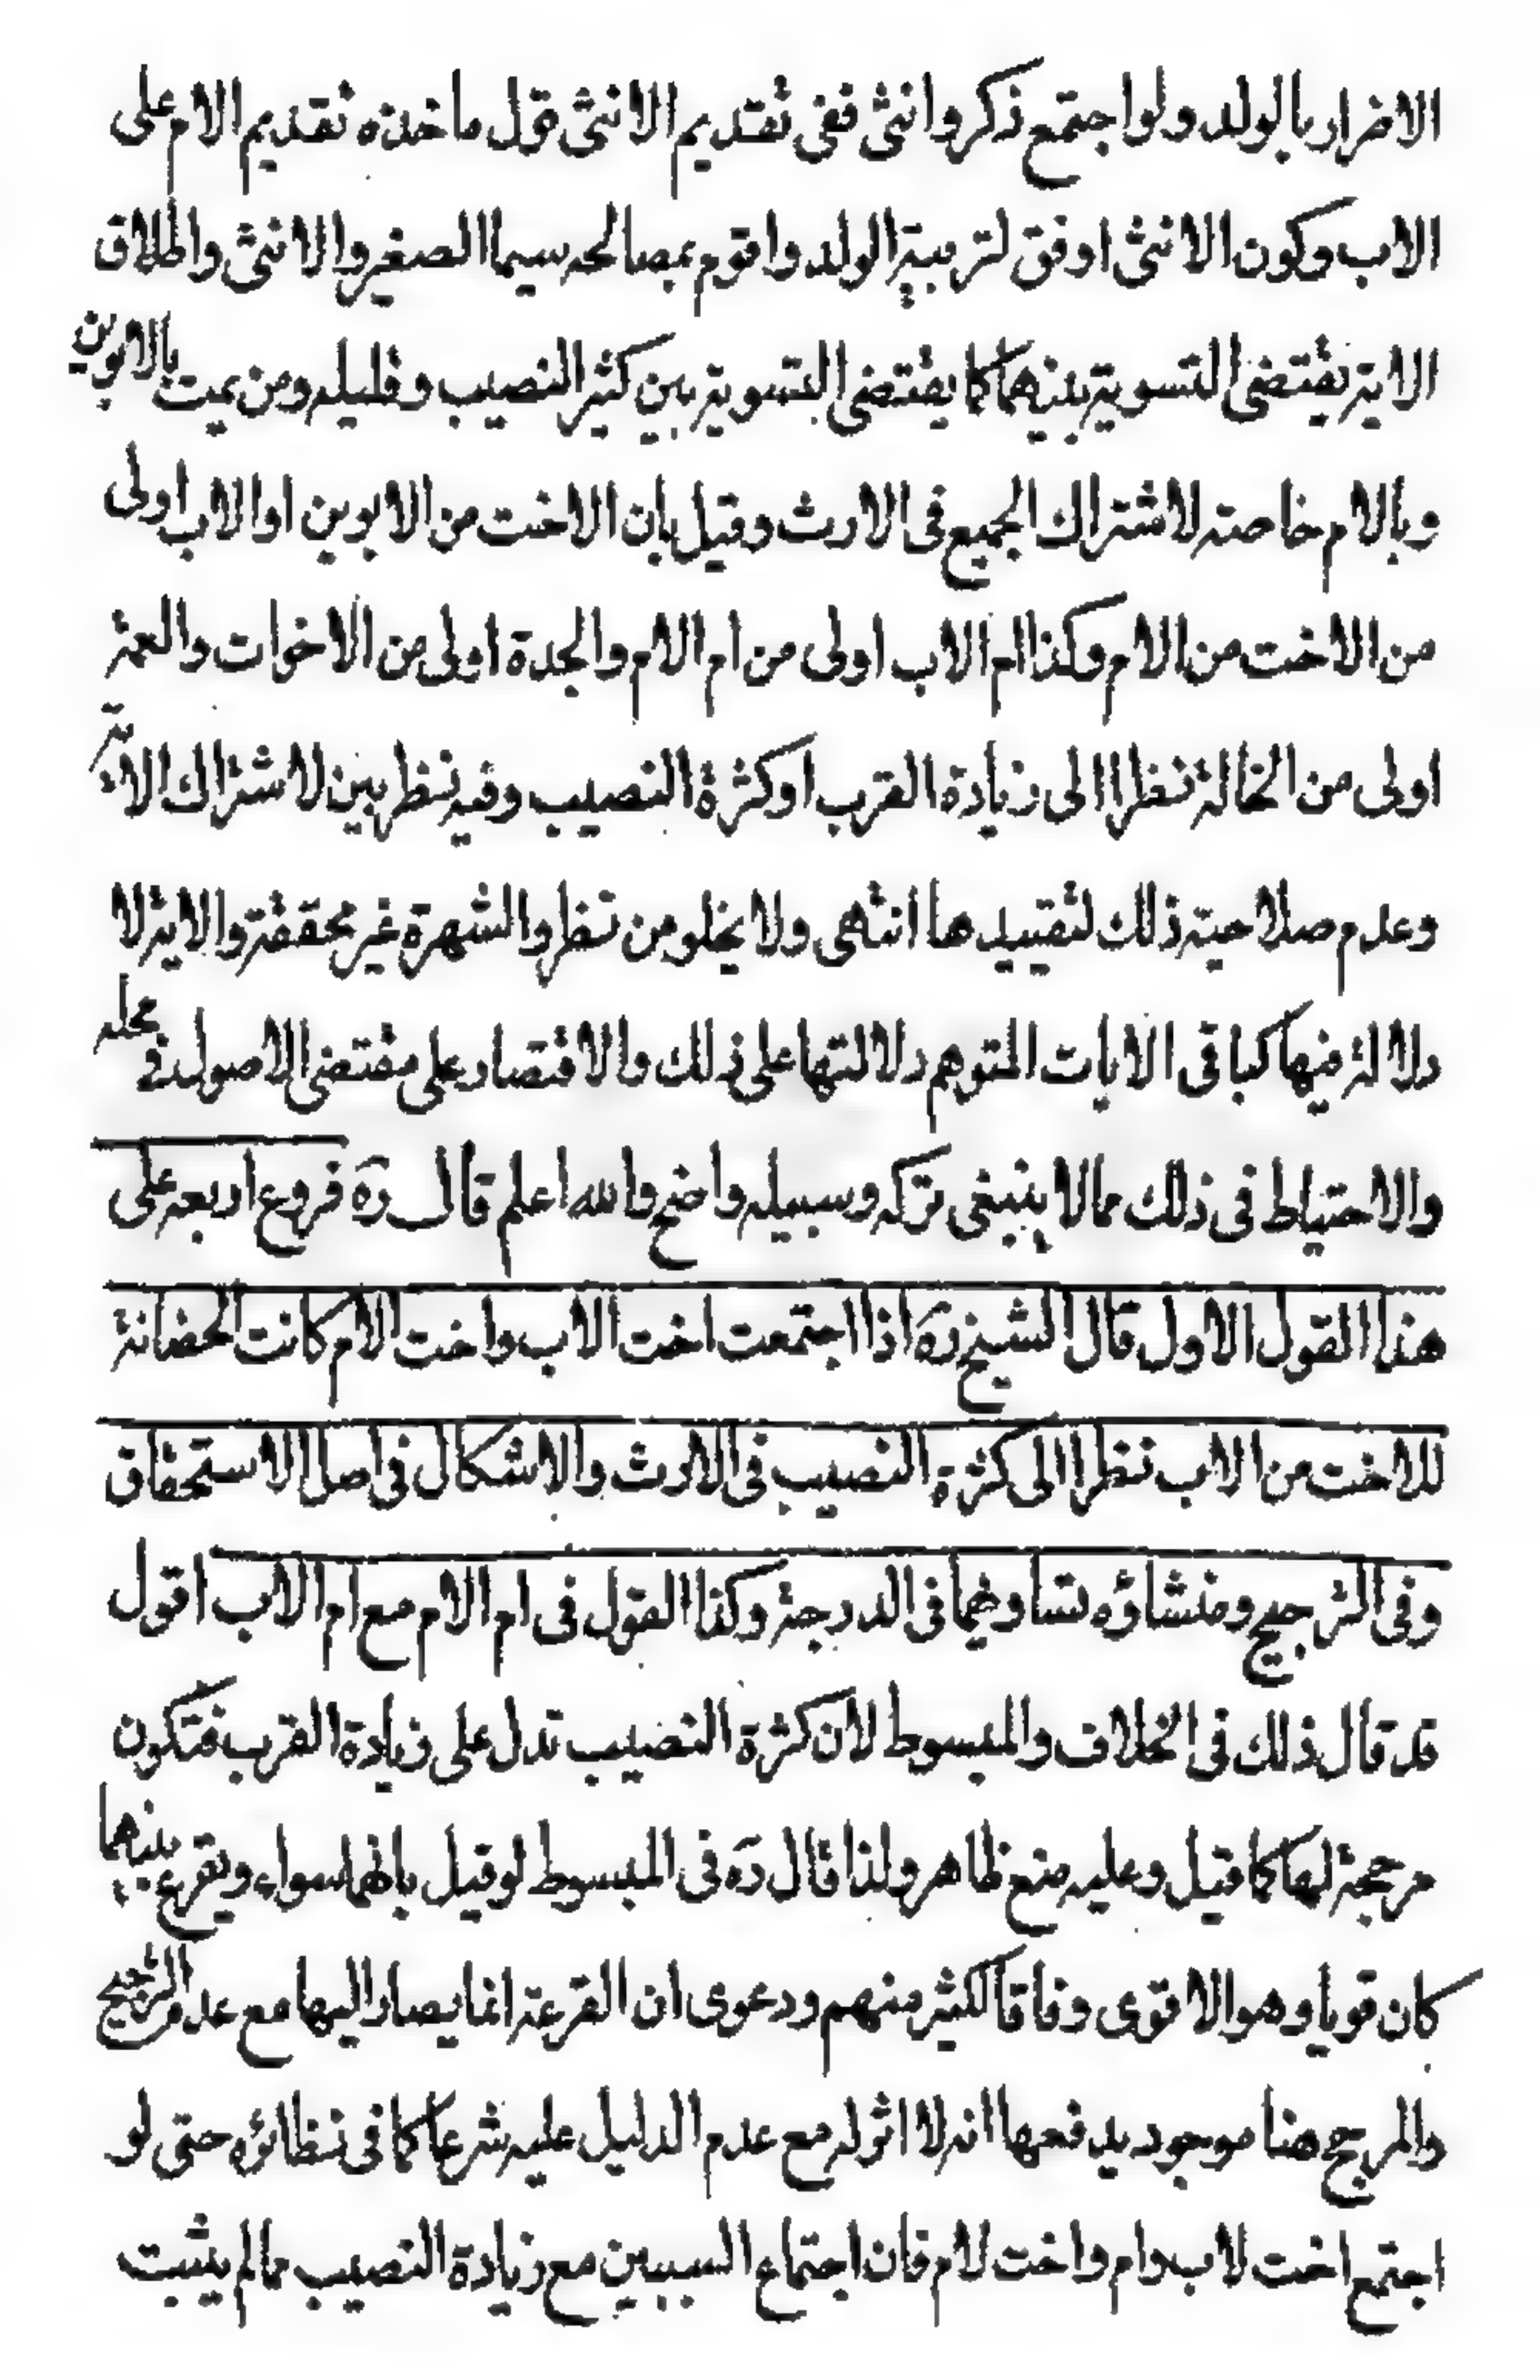 الاضرار بالولد ولو اجتمع ذكر وانثى ففى تقديم الانثى قول ماخذه تقديم الام على
الاب وكون الانثى اوفق لتربية الولد واقوم بمصالحه سيما الصغير والانثى واطلاق
الاية يقتضى التسوية بينهما كما يقتضى التسوية بين كثير النصيب وقليله ومن يمت بالابوين
وبالام خاصة لاشتراك الجميع فى الارث وقيل بان الاخت من الابوين او الاب اولى
من الاخت من الام وكذا ام الاب اولى من ام الام والجدة اولى من الاخوات والعمة
اولى من الخالة نظرا الى زيادة القرب او كثرة النصيب وفيه نظر بين لاشتراك الارث
وعدم صلاحية ذلك لتقييدها انتهى ولا يخلو من نظر والشهرة غير محققة والاية لا
دلالة فيها كباقى الايات المتوهم دلالتها على ذلك والاقتصار على مقتضى الاصول فى محله
والاحتياط فى ذلك مما لا ينبغى تركه وسبيله واضح والله اعلم قال ره فروع اربعه على
هذا القول الاول قال الشيخ ره اذا اجتمعت اخت الاب واخت الام كانت الحضانة
للاخت من الاب نظرا الى كثرة النصيب فى الارث والاشكال فى اصل الاستحقاق
وفى الترجيح ومنشاؤه تساويهما فى الدرجة وكذا القول فى ام الام مع ام الاب اقول
قد قال ذلك فى الخلاف والمبسوط لان كثرة النصيب تدل على زيادة القرب فتكون
مرجحة لها كما قيل وعليه منع ظاهر ولذا قال ره فى المبسوط لو قيل بانهما سواء ويقرع بينهما
كان قويا وهو الاقوى وفاقا لكثير منهم ودعوى ان القرعة انما يصار اليها مع عدم الترجيح
والمرجح هنا موجود يدفعها انه لا اثر له مع عدم الدليل عليه شرعا كما فى نظائره حتى لو
اجتمع اخت لاب وام واخت لام فان اجتماع السببين مع زيادة النصيب مما لم يثبت